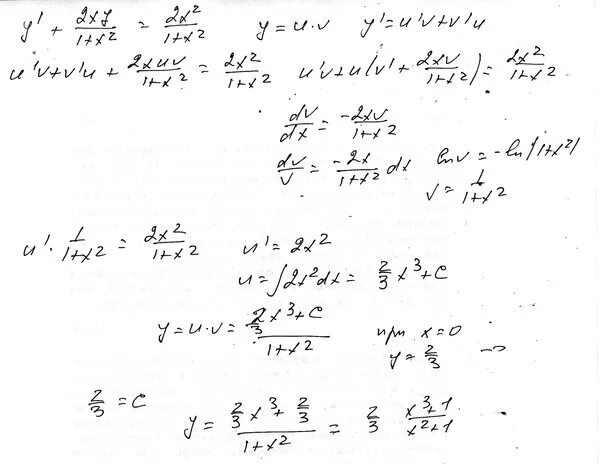 y' + 2xy/(1+x²) = 2x²/(1+x²)   y = u·v   y' = u'v+v'u
u'v+v'u + 2xuv/(1+x²) = 2x²/(1+x²)   u'v+u(v' + 2xv/(1+x²)) = 2x²/(1+x²)
dv/dx = -2xv/(1+x²)
dv/v = -2x/(1+x²) dx   lnv = -ln(1+x²)
v = 1/(1+x²)
u' · 1/(1+x²) = 2x²/(1+x²)   u' = 2x²
u = ∫2x²dx = 2/3 x³+C
y = u·v = (2/3 x³+C)/(1+x²)   при x=0
y = 2/3 ⇒
2/3 = C
y = (2/3 x³ + 2/3)/(1+x²) = 2/3 (x³+1)/(x²+1)